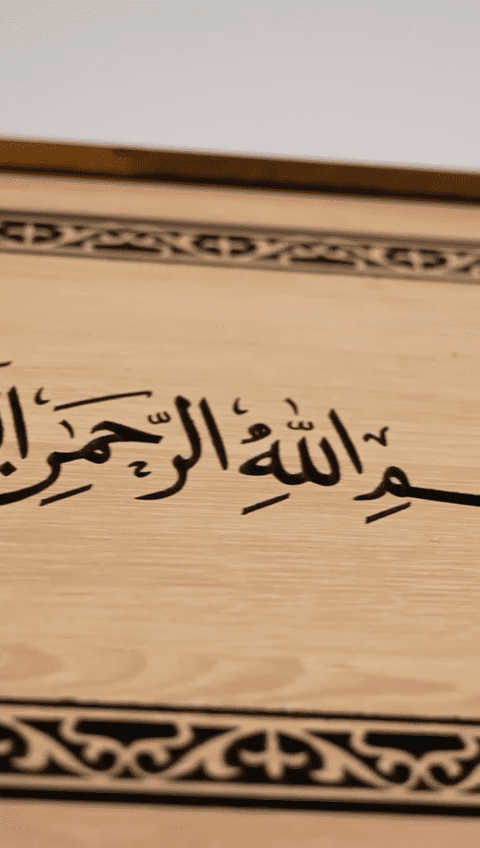 ـمِ اللّٰهِ الرَّحمٰنِ